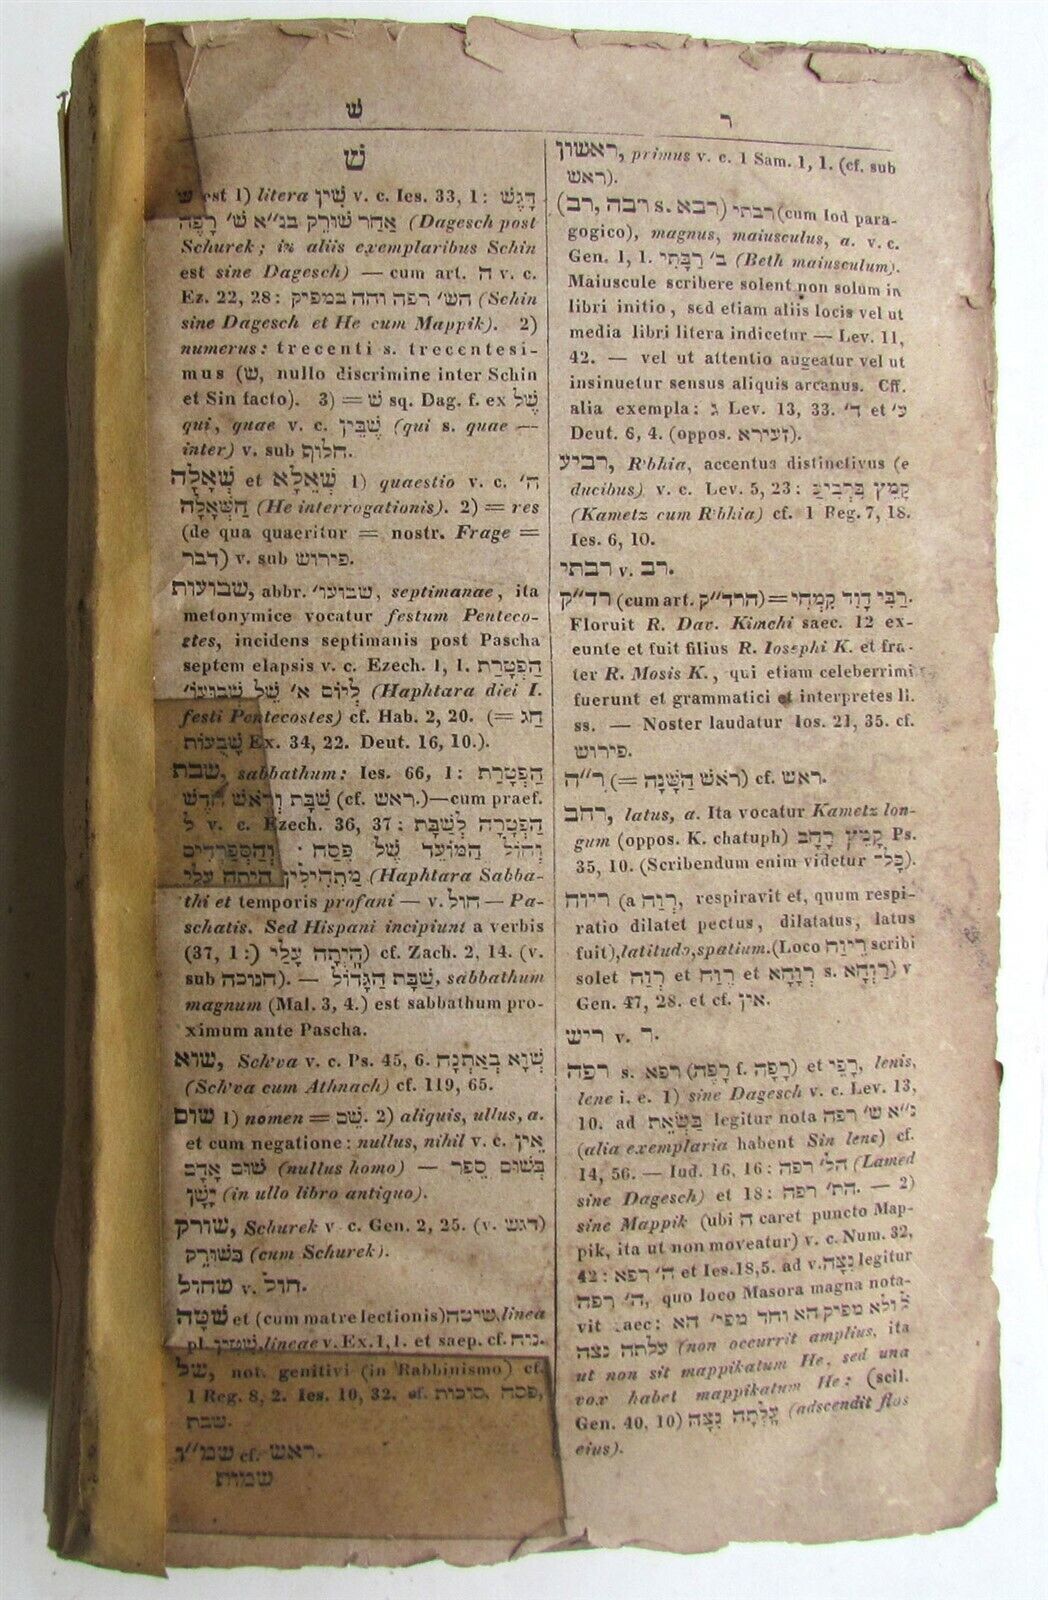 ר
ש
ראשון, primus v. c. 1 Sam. 1, 1. (cf. sub
ראש).
רבתי (רבא s. רבה, רב) (cum Iod para-
gogico), magnus, maiusculus, a. v. c.
Gen. 1, 1. ב׳ רַבָּתִי (Beth maiusculum).
Maiuscule scribere solent non solum in
libri initio, sed etiam aliis locis vel ut
media libri litera indicetur — Lev. 11,
42. — vel ut attentio augeatur vel ut
insinuetur sensus aliquis arcanus. Cff.
alia exempla: ג Lev. 13, 33. ד׳ et ע׳
Deut. 6, 4. (oppos. זעירא).
רביע, R'bhia, accentus distinctivus (e
ducibus) v. c. Lev. 5, 23: קמץ בִּרְבִיעַ
(Kametz cum R'bhia) cf. 1 Reg. 7, 18.
Ies. 6, 10.
רבתי v. רב.
רד״ק (cum art. הרד״ק)=רַבִּי דָוִד קִמְחִי.
Floruit R. Dav. Kimchi saec. 12 ex-
eunte et fuit filius R. Iosephi K. et fra-
ter R. Mosis K., qui etiam celeberrimi
fuerunt et grammatici et interpretes li.
ss. — Noster laudatur Ios. 21, 35. cf.
פירוש.
ר״ה (=רֹאשׁ הַשָּׁנָה) cf. ראש.
רחב, latus, a. Ita vocatur Kametz lon-
gum (oppos. K. chatuph) קָמֵץ רָחָב Ps.
35, 10. (Scribendum enim videtur כָּל־).
ריוח (a רָוַח, respiravit et, quum respi-
ratio dilatet pectus, dilatatus, latus
fuit), latitudo, spatium. (Loco רֵיוַח scribi
solet רֶוַח et רֵוַח et רְוָחָא s. רַוְחָא) v
Gen. 47, 28. et cf. אין.
ריש v. ר.
רפה s. רפא (רָפֶה f. רָפָה) et רָפֵי, lenis,
lene i. e. 1) sine Dagesch v. c. Lev. 13,
10. ad בַּשְׂאֵת legitur nota נ״א ש׳ רפה
(alia exemplaria habent Sin lene) cf.
14, 56. — Iud. 16, 16: הל׳ רפה (Lamed
sine Dagesch) et 18: הת׳ רפה. — 2)
sine Mappik (ubi ה caret puncto Map-
pik, ita ut non moveatur) v. c. Num. 32,
42: ה׳ רפא et Ies. 18, 5. ad v. נִצָּה legitur
ה׳ רפה, quo loco Masora magna nota-
vit haec: לֹ ולא מפיק הא וחד מפי׳ הא
עלתה נצה (non occurrit amplius, ita
ut non sit mappikatum He, sed una
vox habet mappikatum He: (scil.
Gen. 40, 10) עָלְתָה נִצָּהּ (adscendit flos
eius).
שׁ
ש est 1) litera שִׁין v. c. Ies. 33, 1: דָּגֵשׁ
אַחַר שׁוּרֶק בנ״א ש׳ רָפֶה (Dagesch post
Schurek; in aliis exemplaribus Schin
est sine Dagesch) — cum art. ה v. c.
Ez. 22, 28: הש׳ רפה וההּ במפיק (Schin
sine Dagesch et He cum Mappik). 2)
numerus: trecenti s. trecentesi-
mus (ש, nullo discrimine inter Schin
et Sin facto). 3) = שׁ sq. Dag. f. ex שֶׁל
qui, quae v. c. שֶׁבֵּין (qui s. quae —
inter) v. sub חלוף.
שְׁאֵלָא et שְׁאֵלָה 1) quaestio v. c. ה׳
הַשְּׁאֵלָה (He interrogationis). 2) = res
(de qua quaeritur = nostr. Frage =
דבר) v. sub פירוש.
שבועות, abbr. שבועו׳, septimanae, ita
metonymice vocatur festum Penteco-
stes, incidens septimanis post Pascha
septem elapsis v. c. Ezech. 1, 1. הַפְטָרַת
לְיוֹם א׳ שֶׁל שבועו׳ (Haphtara diei I.
festi Pentecostes) cf. Hab. 2, 20. (= חַג
שָׁבֻעוֹת Ex. 34, 22. Deut. 16, 10.).
שבת, sabbathum: Ies. 66, 1: הַפְטָרַת
שַׁבָּת וְרֹאשׁ חֹדֶשׁ (cf. ראש.)—cum praef.
ל v. c. Ezech. 36, 37: הַפְטָרָה לְשַׁבָּת
וְחוֹל הַמּוֹעֵד שֶׁל פֶּסַח: וְהַסְּפָרַדִּים
מַתְחִילִין הָיְתָה עָלַי (Haphtara Sabba-
thi et temporis profani — v. חול — Pa-
schatis. Sed Hispani incipiunt a verbis
(37, 1:) הָיְתָה עָלַי) cf. Zach. 2, 14. (v.
sub חנוכה). — שַׁבָּת הַגָּדוֹל, sabbathum
magnum (Mal. 3, 4.) est sabbathum pro-
ximum ante Pascha.
שוא, Sch'va v. c. Ps. 45, 6. שְׁוָא בְאַתְנָח
(Sch'va cum Athnach) cf. 119, 65.
שום 1) nomen = שֵׁם. 2) aliquis, ullus, a.
et cum negatione: nullus, nihil v. c. אֵין
שׁוּם אָדָם (nullus homo) — בְּשׁוּם סֵפֶר
יָשָׁן (in ullo libro antiquo).
שורק, Schurek v c. Gen. 2, 25. (v. דגש)
בְּשׁוּרֶק (cum Schurek).
שחול v. חול.
שִׁטָּה et (cum matre lectionis) שיטה, linea
pl. שִׁטִּין, lineae v. Ex. 1, 1. et saep. cf. נוח.
של, not. genitivi (in Rabbinismo) cf.
1 Reg. 8, 2. Ies. 10, 32. cf. סוכות, פסח,
שבת.
שמ״ו cf. ראש.
שמות